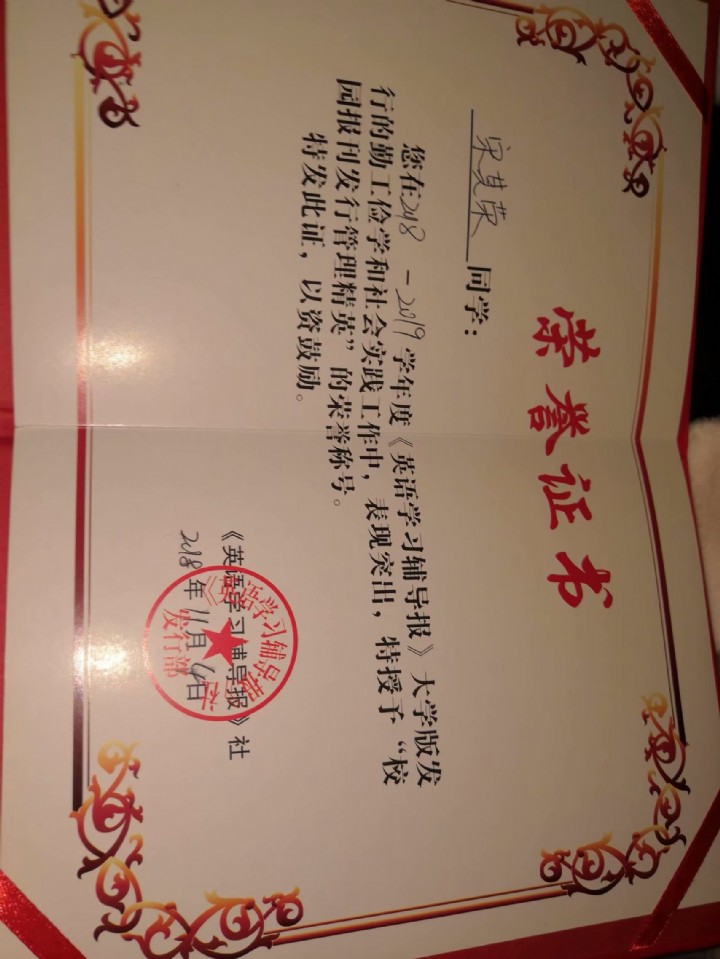 荣誉证书
宋其荣 同学：
您在2018-2019学年度《英语学习辅导报》大学版发
行的勤工俭学和社会实践工作中，表现突出，特授予“校
园报刊发行管理精英”的荣誉称号。
特发此证，以资鼓励。
《英语学习辅导报》社
2018年11月4日
发行部